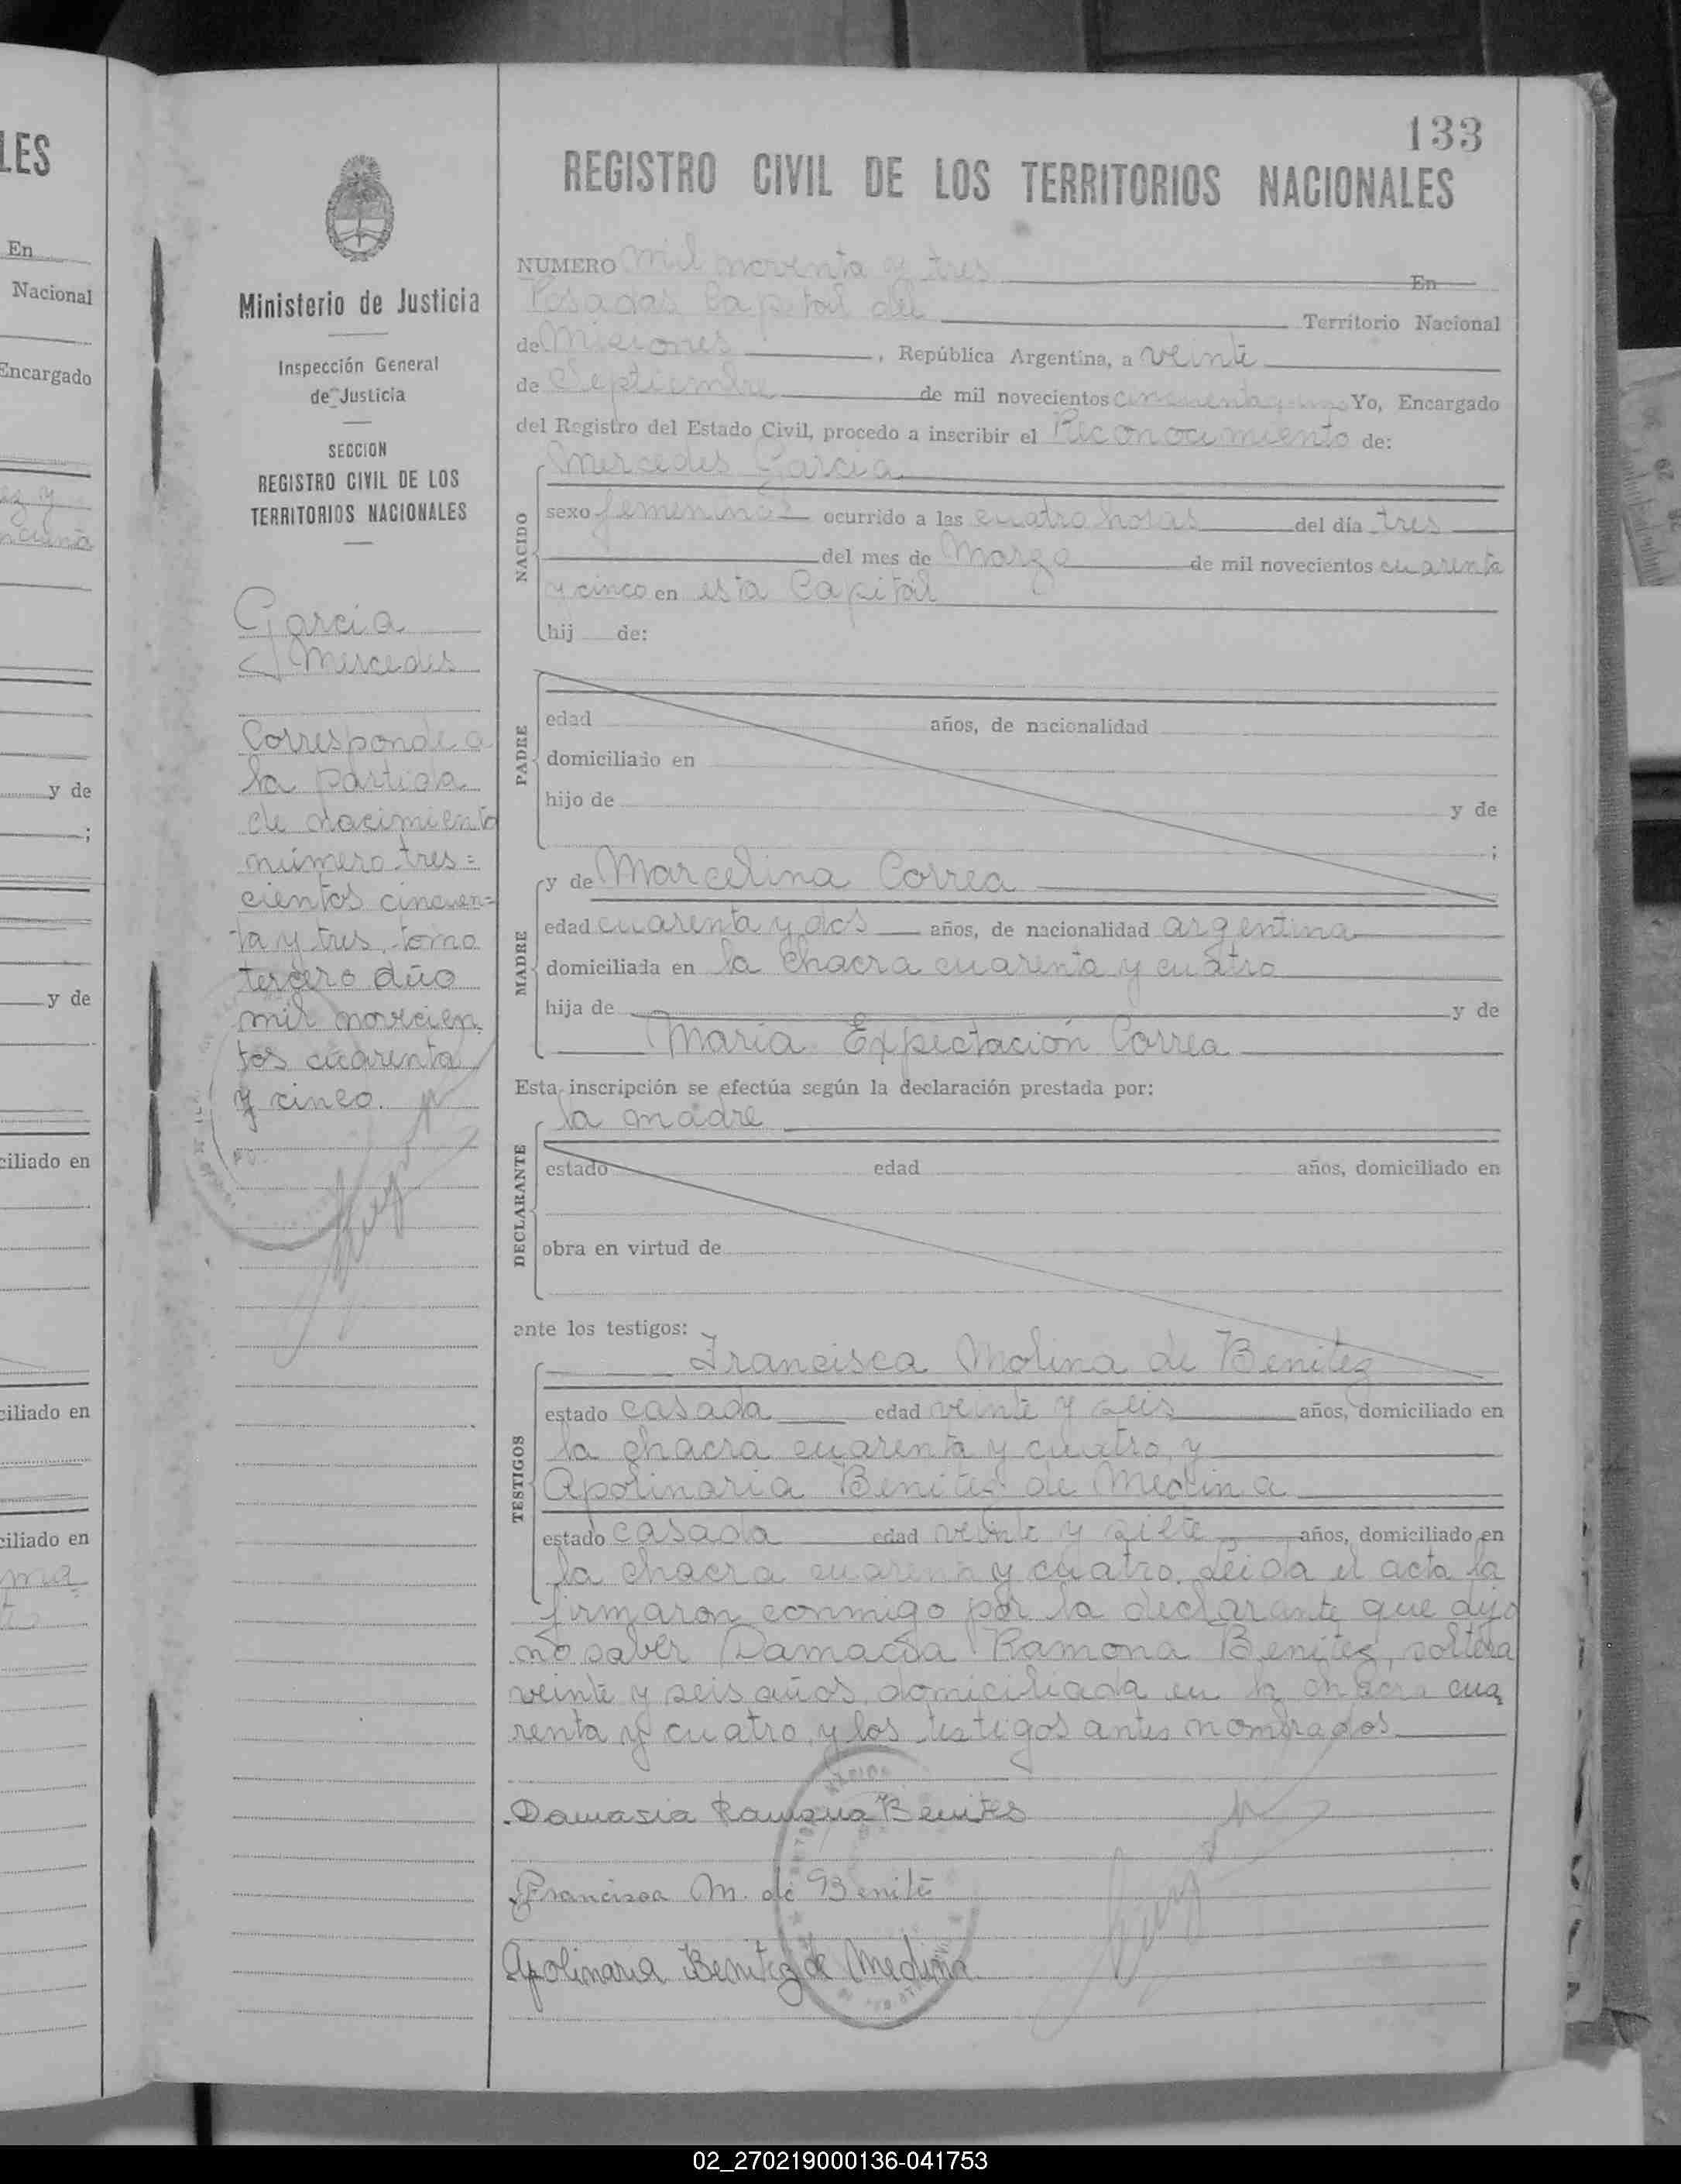 LES
En
Nacional
Encargado
y de
;
y de
ciliado en
ciliado en
ciliado en
Ministerio de Justicia
Inspección General
de Justicia
SECCION
REGISTRO CIVIL DE LOS
TERRITORIOS NACIONALES
Garcia
Mercedes
Corresponde a
la partida
de nacimiento
número tres=
cientos cincuen=
ta y tres, tomo
tercero año
mil novecien
tos cuarenta
y cinco.
133
REGISTRO CIVIL DE LOS TERRITORIOS NACIONALES
NUMERO mil noventa y tres En
Posadas Capital del Territorio Nacional
de Misiones, República Argentina, a veinte
de Septiembre de mil novecientos cincuenta y uno Yo, Encargado
del Registro del Estado Civil, procedo a inscribir el Reconocimiento de:
NACIDO
Mercedes Garcia
sexo femenino ocurrido a las cuatro horas del día tres
del mes de Marzo de mil novecientos cuarenta
y cinco en esta Capital
hij de:
PADRE
edad años, de nacionalidad
domiciliado en
hijo de y de
;
MADRE
y de Marcelina Correa
edad cuarenta y dos años, de nacionalidad argentina
domiciliada en la chacra cuarenta y cuatro
hija de y de
Maria Expectación Correa
Esta inscripción se efectúa según la declaración prestada por:
DECLARANTE
la madre
estado edad años, domiciliado en
obra en virtud de
ante los testigos:
TESTIGOS
Francisca Molina de Benitez
estado casada edad veinte y seis años, domiciliado en
la chacra cuarenta y cuatro, y
Apolinaria Benitez de Medina
estado casada edad veinte y siete años, domiciliado en
la chacra cuarenta y cuatro. Leida el acta la
firmaron conmigo por la declarante que dijo
no saber Damacia Ramona Benitez, soltera
veinte y seis años, domiciliada en la chacra cua
renta y cuatro, y los testigos antes nombrados
Damasia Ramona Benites
Francisca M. de Benite
Apolinaria Benitez de Medina
02_270219000136-041753